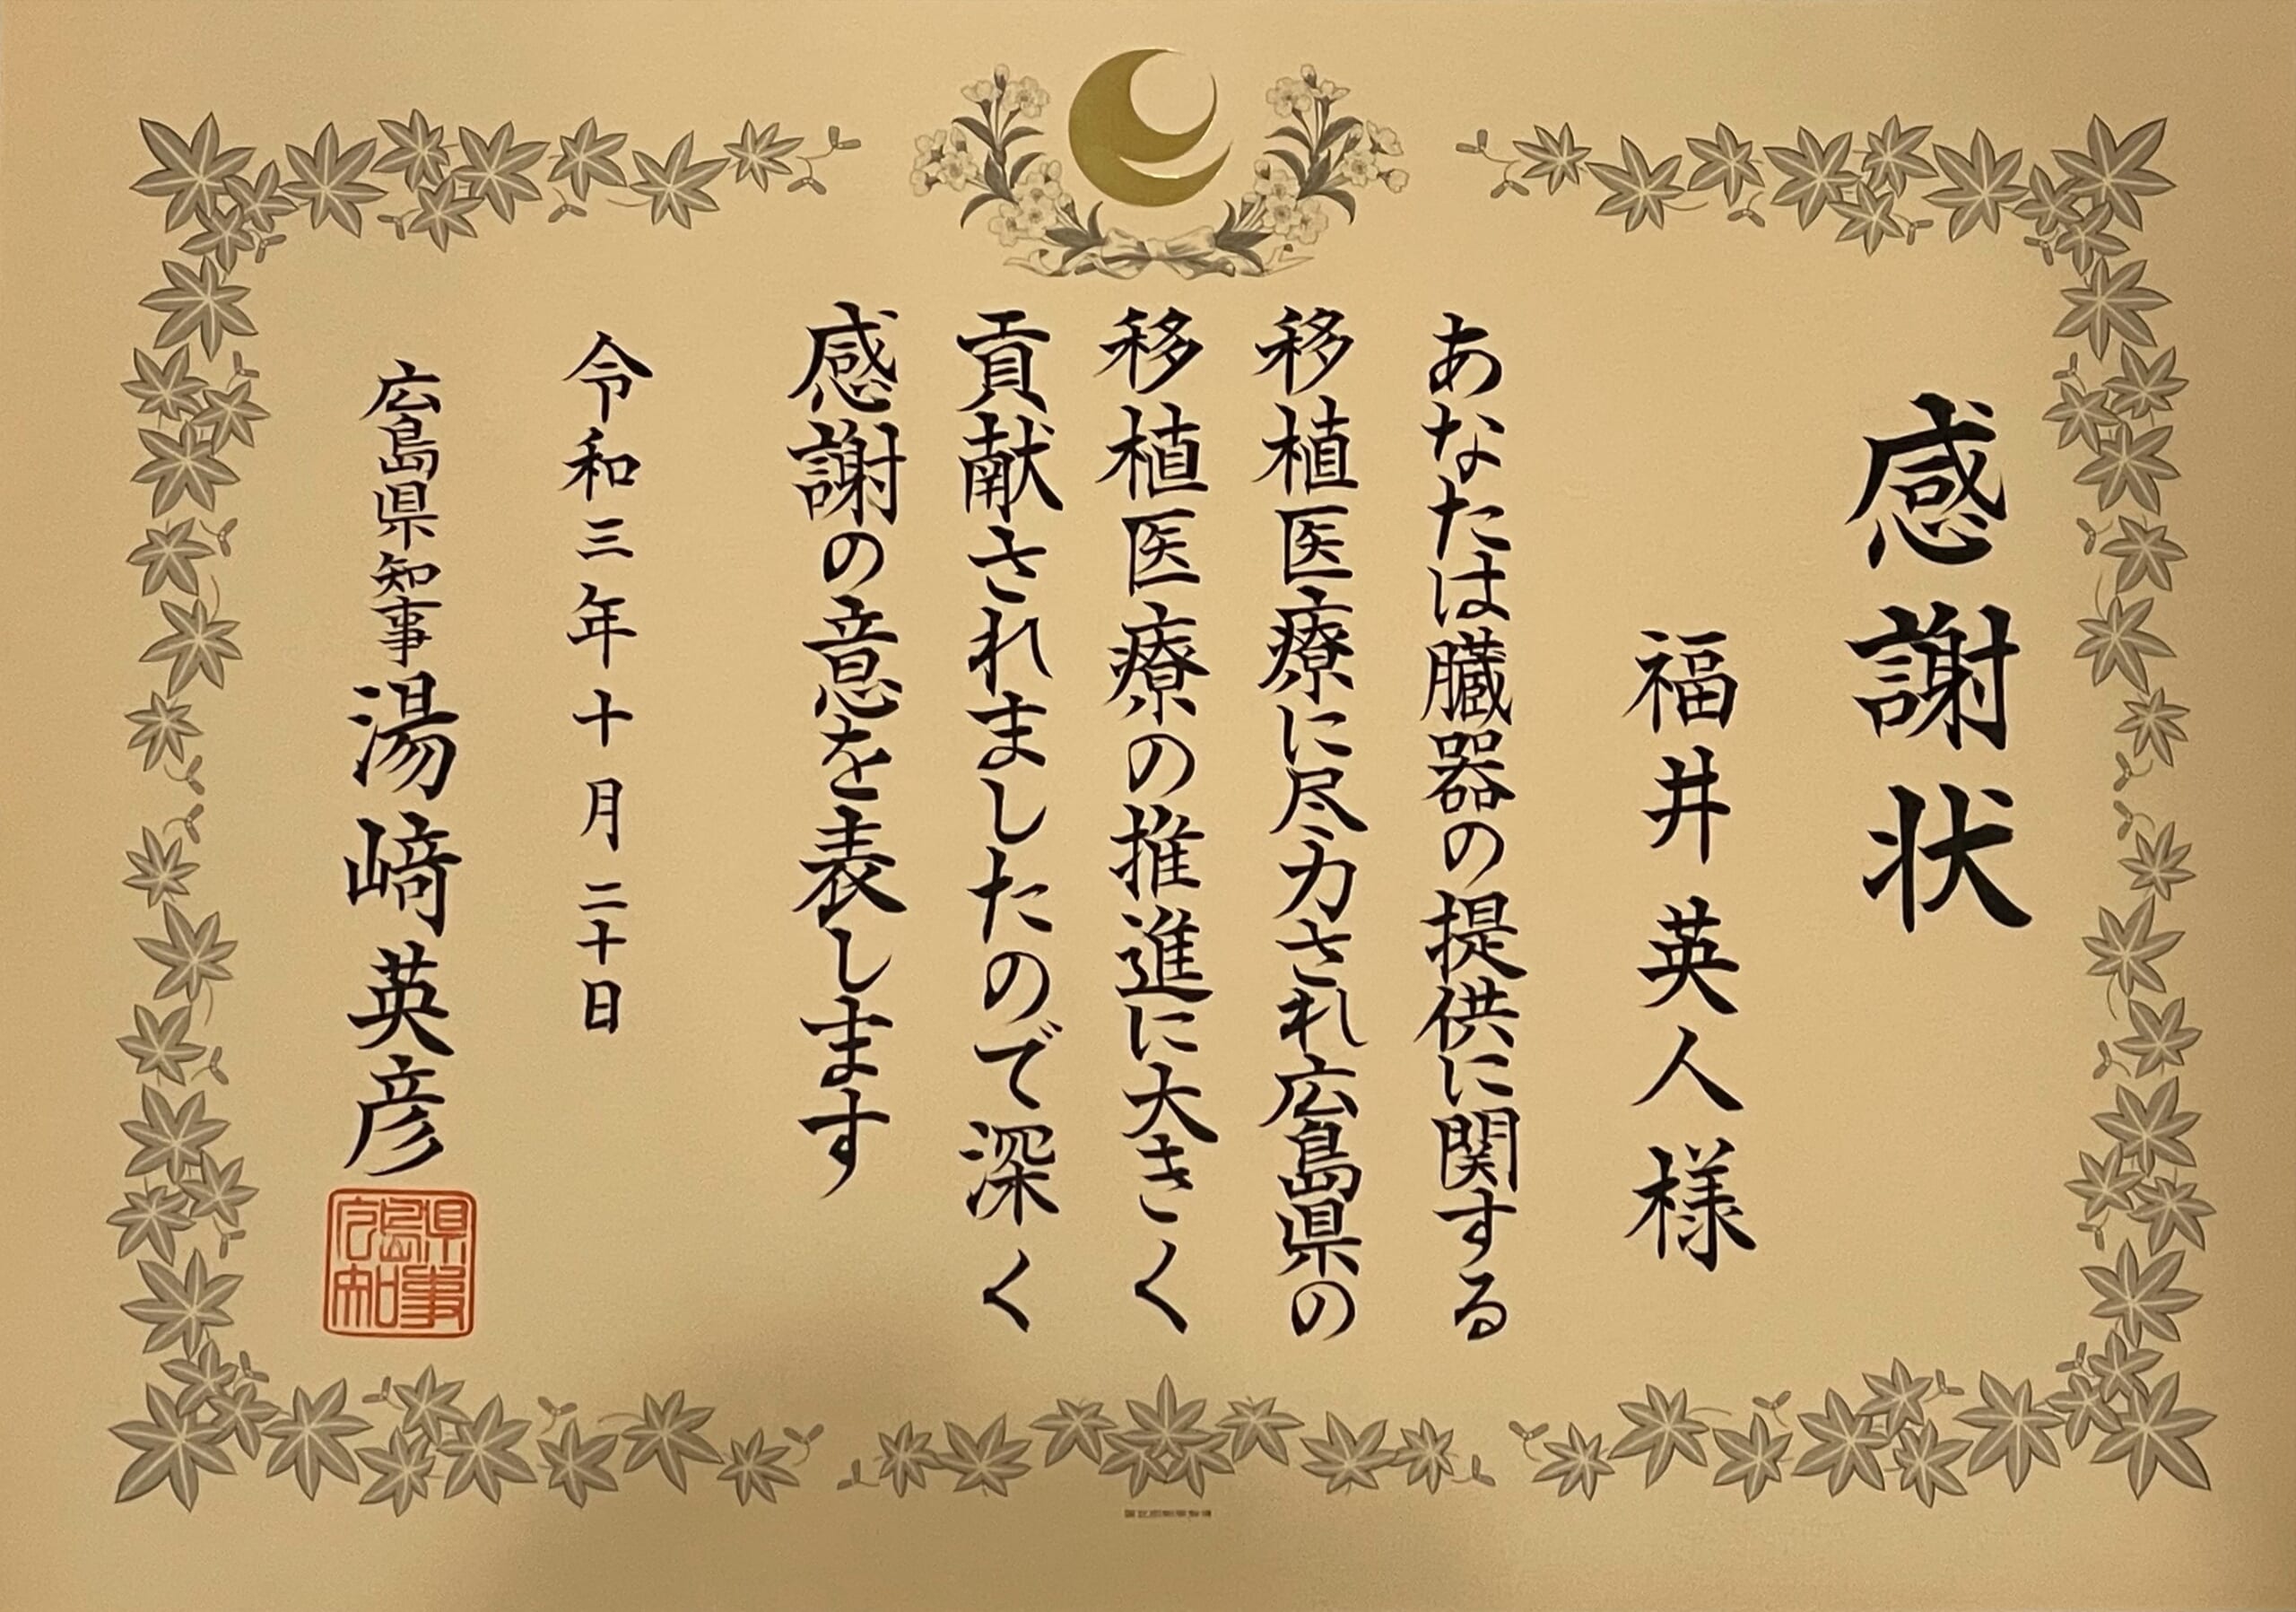 感謝状
福井英人様
あなたは臓器の提供に関する
移植医療に尽力され広島県の
移植医療の推進に大きく
貢献されましたので深く
感謝の意を表します
令和三年十月二十日
広島県知事湯﨑英彦
広島県知事